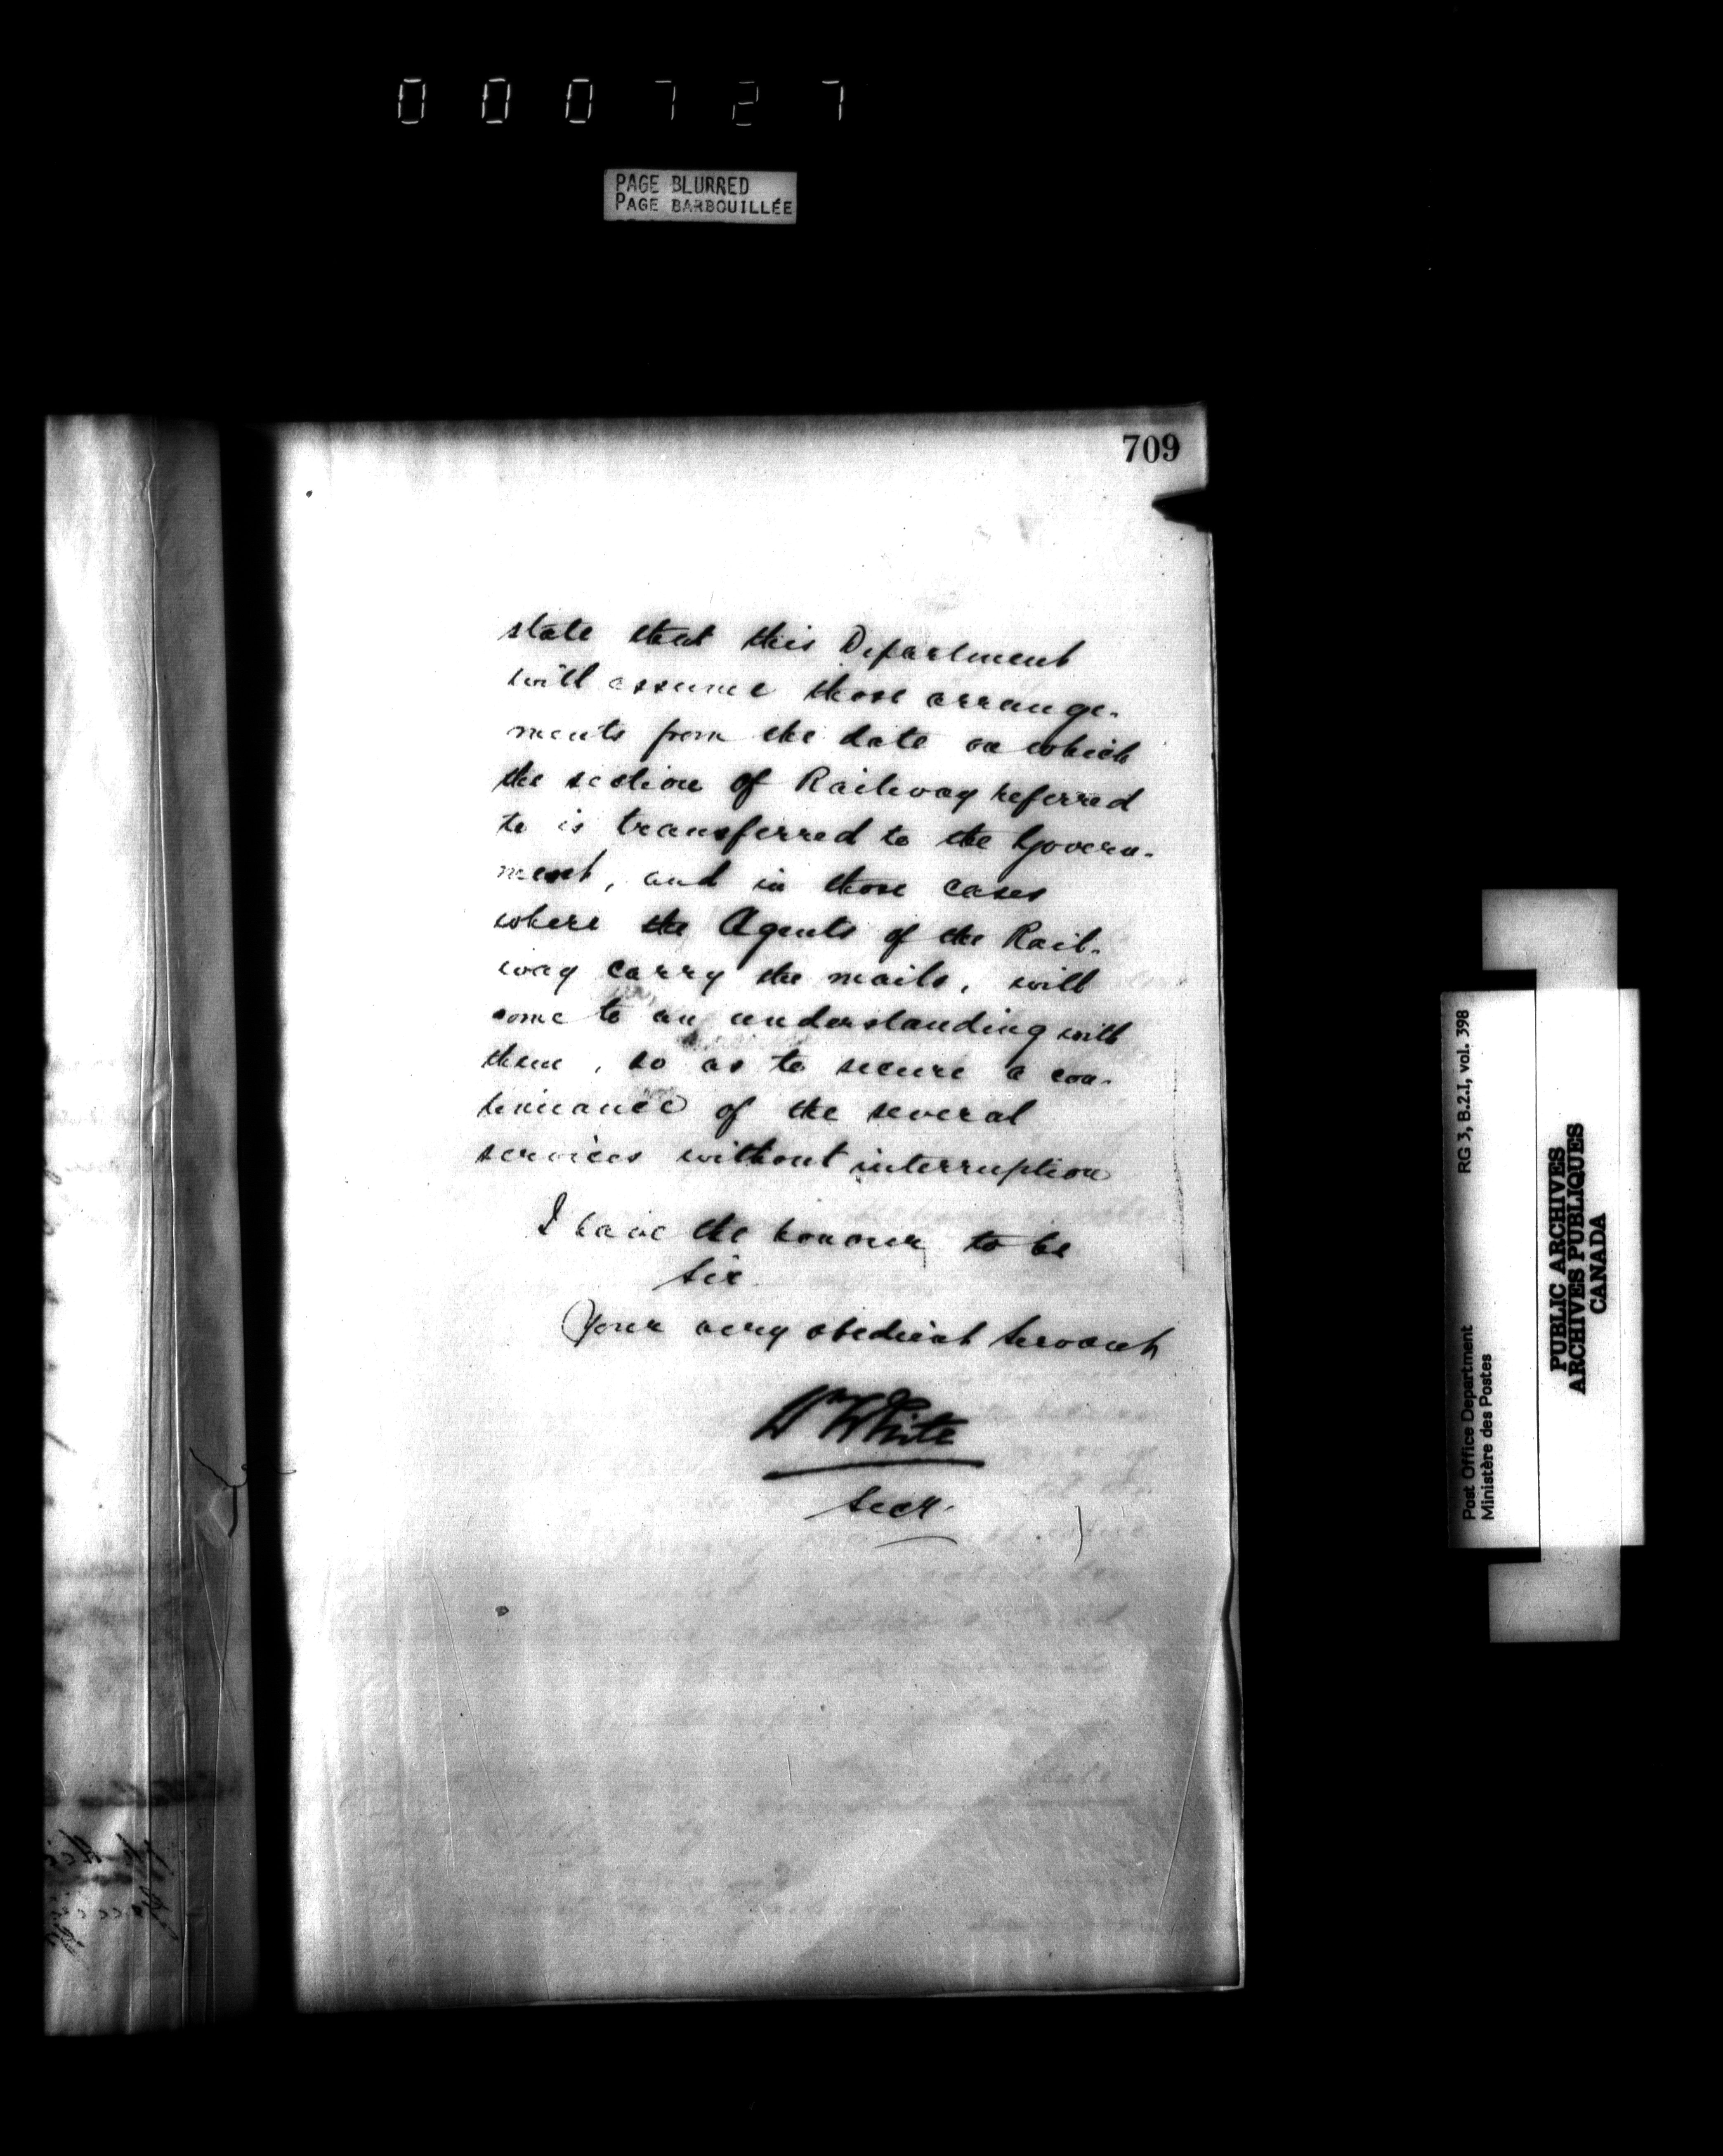 000727
PAGE BLURRED
PAGE BARBOUILLÉE
709
state that this Department
will assume those arrange-
ments from the date on which
the section of Railway referred
to is transferred to the Govern-
ment, and in those cases
where the Agents of the Rail-
way carry the mails, will
come to an understanding with
them, so as to secure a con-
tinuance of the several
services without interruption
I have the honour to be
Sir
Your very obedient Servant
Wm White
Secy.
RG 3, B.2.I, vol. 398
Post Office Department
Ministère des Postes
PUBLIC ARCHIVES
ARCHIVES PUBLIQUES
CANADA